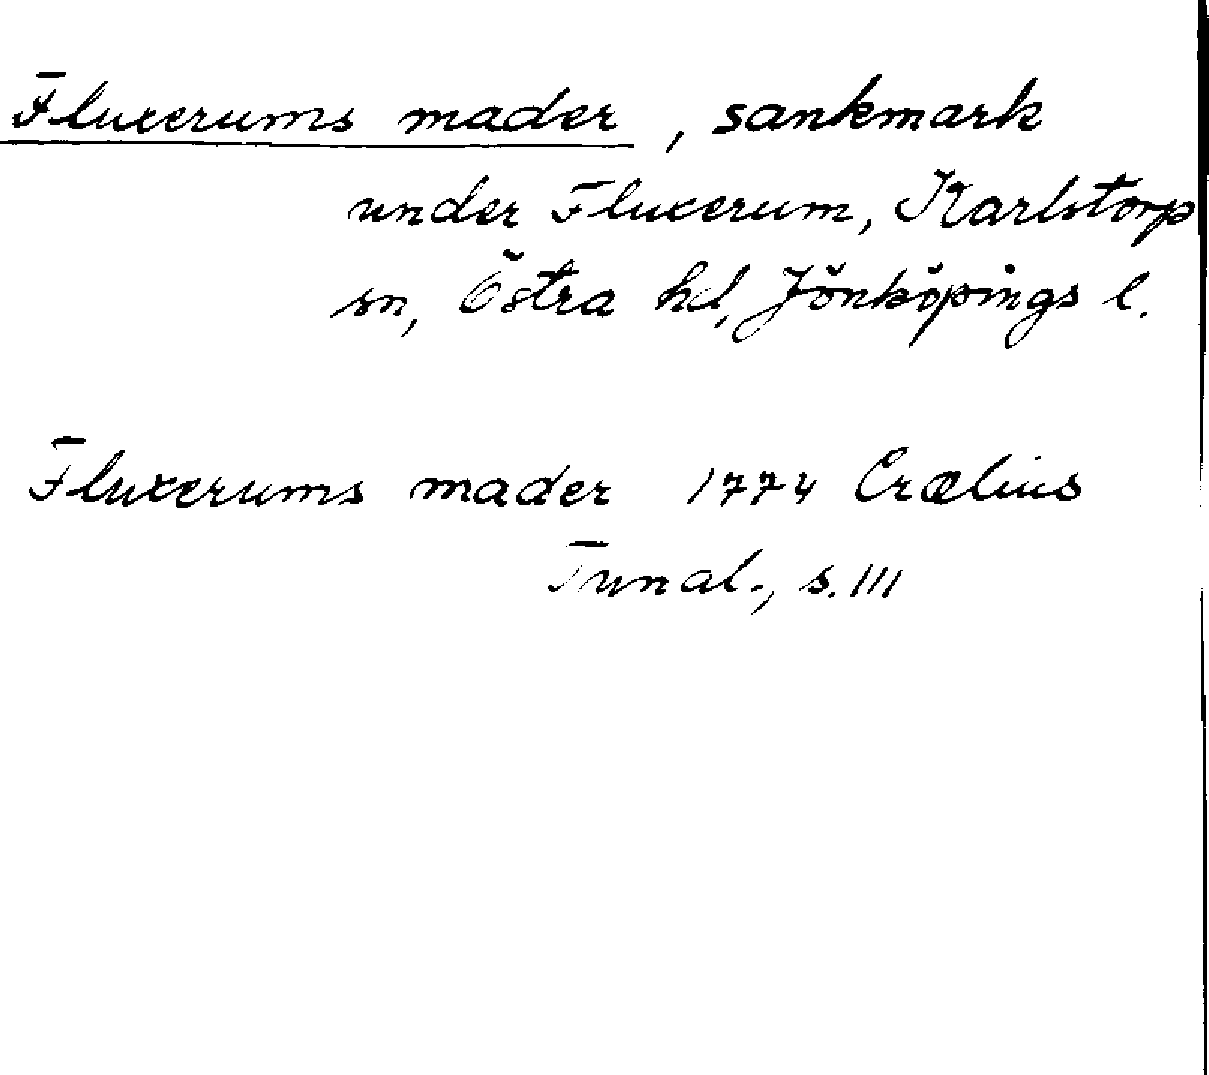 Fluxerums mader, sankmark
under Fluxerum, Karlstorp
sn, Östra hd, Jönköpings l.
Fluxerums mader 1774 Crælius
Tunal., s. 111